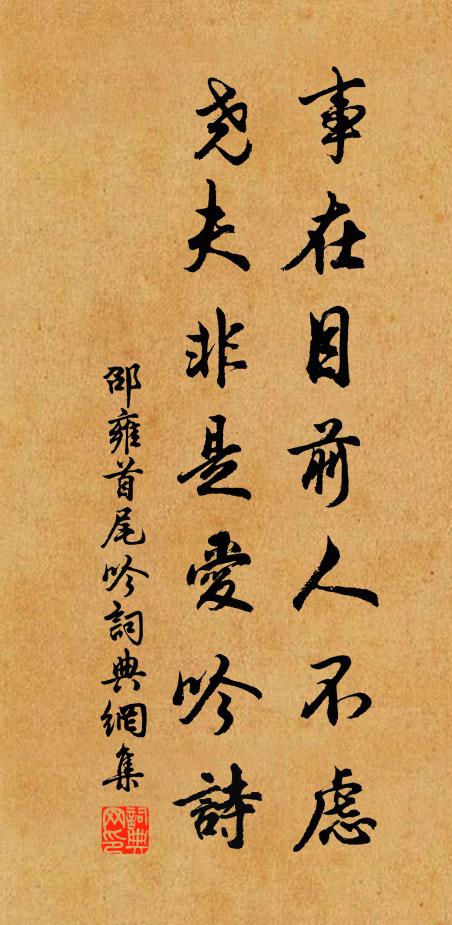 事在目前人不慮
尧夫非是愛吟詩
邵雍首尾吟詞典網集
詞典网印